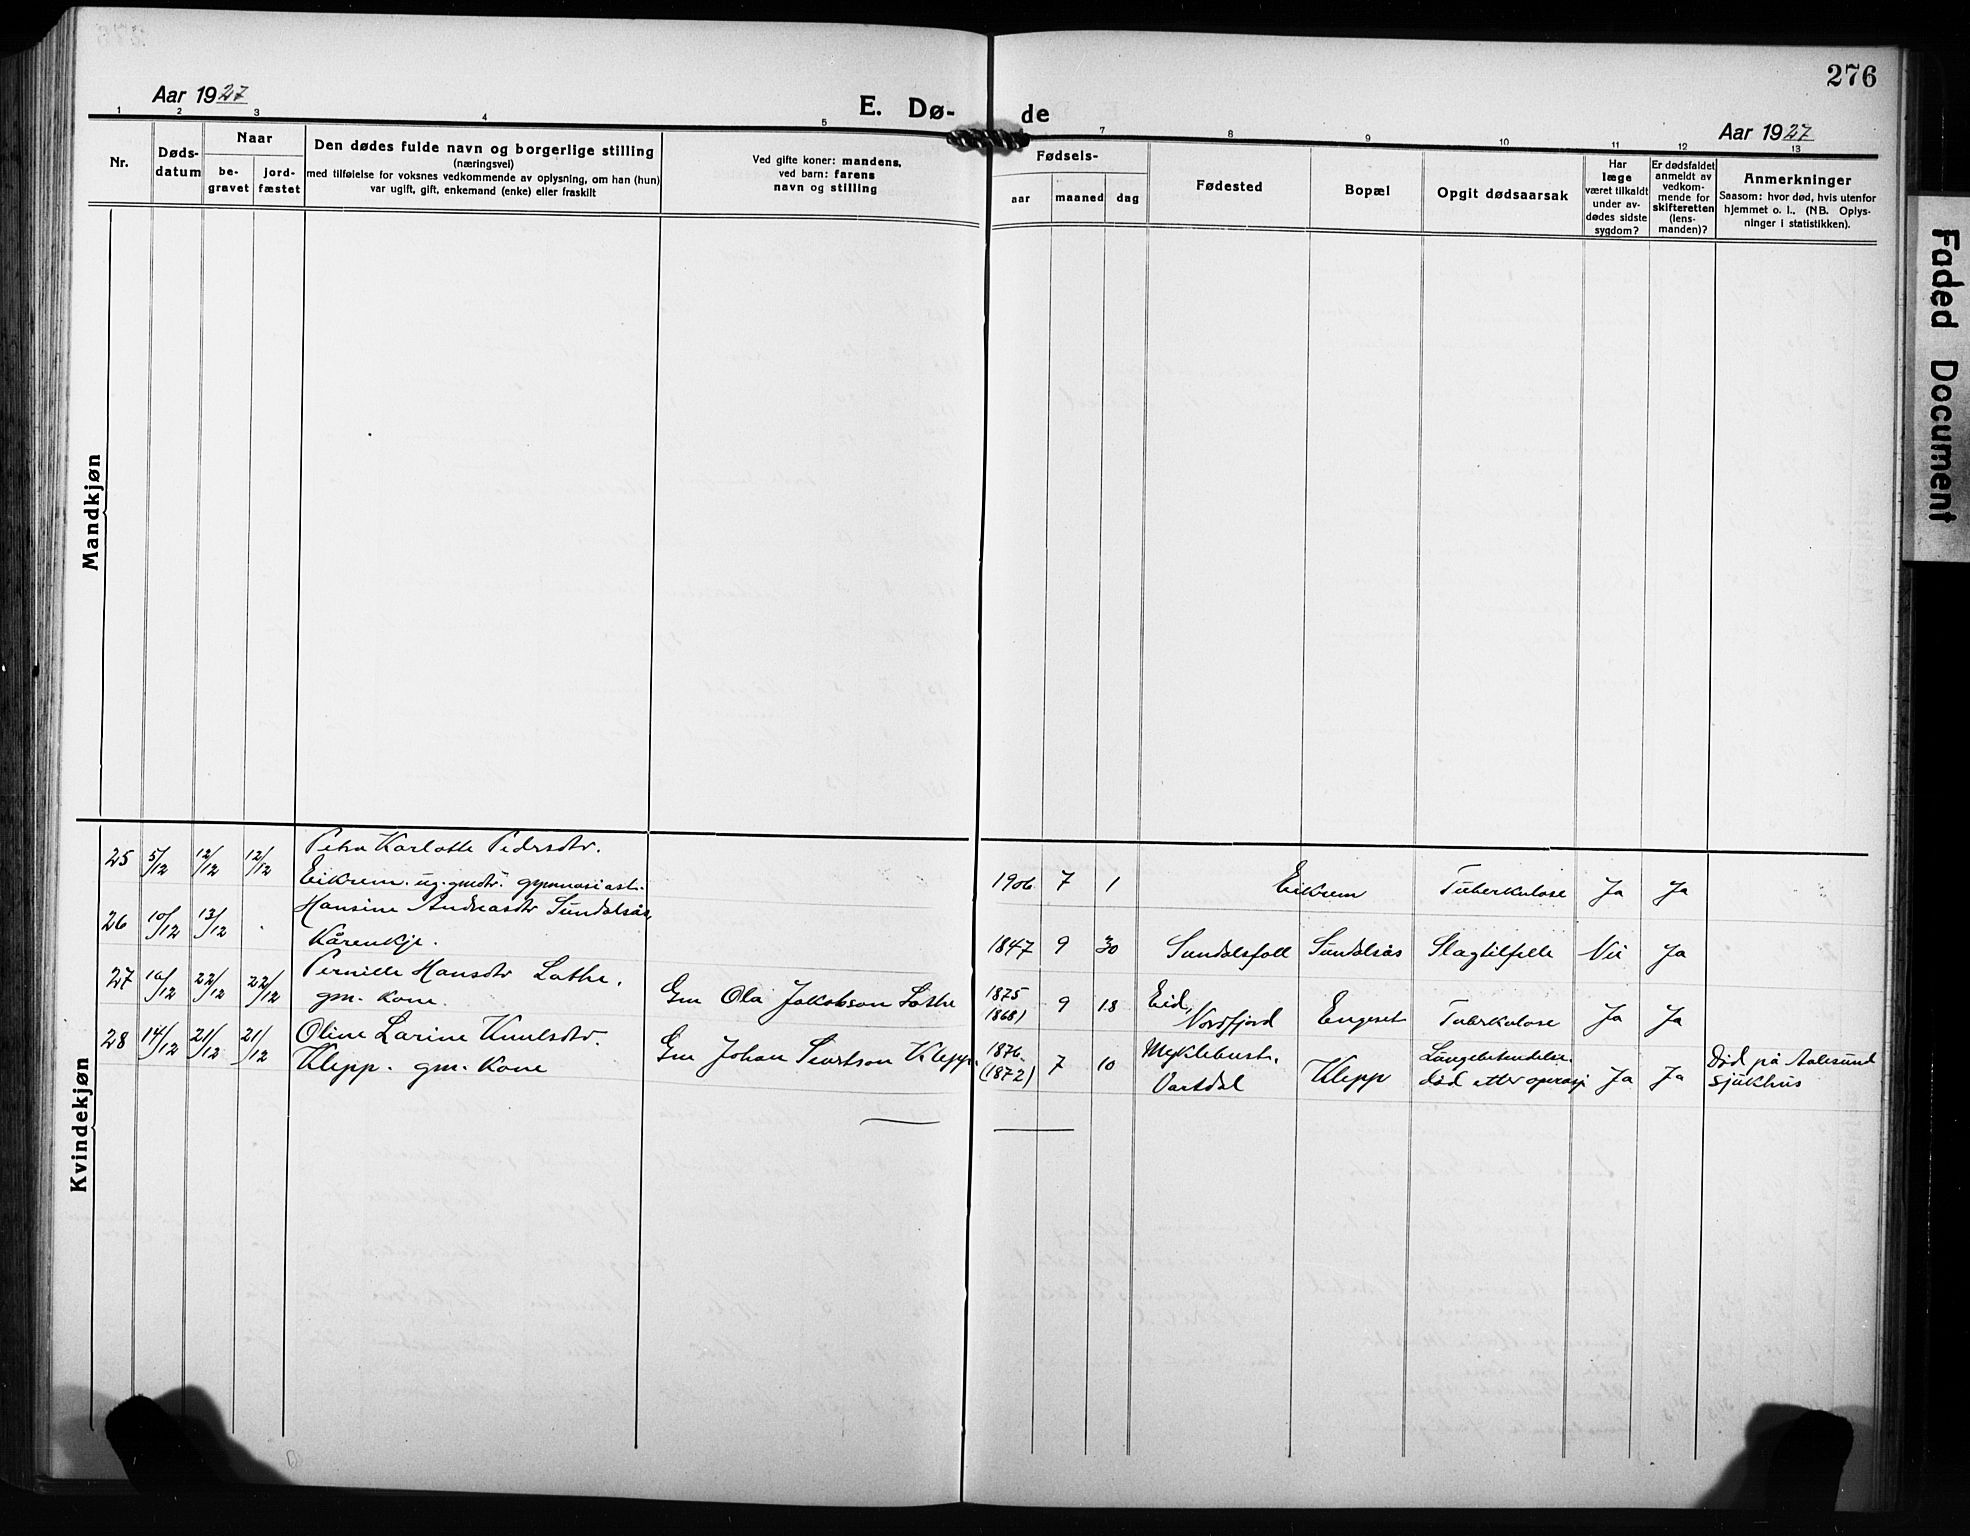 276
Aar 1927
E. Dø-
de
Aar 1927
1 2 3 4 5 7 8 9 10 11 12 13
Nr.
Døds-
datum
Naar
be-
gravet
jord-
fæstet
Den dødes fulde navn og borgerlige stilling
(næringsvei)
med tilføielse for voksnes vedkommende av oplysning, om han (hun)
var ugift, gift, enkemand (enke) eller fraskilt
Ved gifte koner: mandens,
ved barn: farens
navn og stilling
Fødsels-
aar maaned dag
Fødested
Bopæl
Opgit dødsaarsak
Har
læge
været tilkaldt
under av-
dødes sidste
sygdom?
Er dødsfaldet
anmeldt av
vedkom-
mende for
skifteretten
(lens-
manden)?
Anmerkninger
Saasom: hvor død, hvis utenfor
hjemmet o. l., (NB. Oplys-
ninger i statistikken).
Mandkjøn
Kvindekjøn
25 5/12 12/12 12/12 Petra Karlotte Pedersdtr.
Eikrem. ug. gmdtr. gymnasiast. 1906 7 1 Eikrem Tuberkulose Ja Ja
26 10/12 13/12 . Hansine Andreasdtr Sundalsås,
Kårenkje. 1847 9 30 Sundalsfoll Sundalsås Slagtilfelle Nei Ja
27 10/12 22/12 22/12 Pernille Hansdtr Lothe.
gm. kone. Gm Ola Jakobson Lothe 1875
1868) 9 18 Eid,
Nordfjord Engeset Tuberkulose Ja Ja
28 14/12 21/12 21/12 Oline Larine Knutsdtr.
Klepp. gm. kone Gm Johan Klepp. 1876
(1872) 7 10 Myklebust.
Vartdal Klepp død etter operasj Ja Ja Død på Aalesund
sjukhus
Faded Document